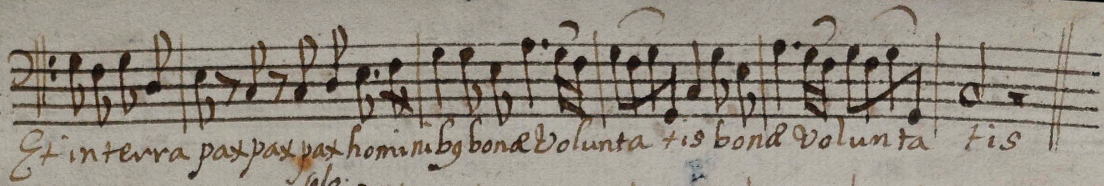 Et in terra pax pax pax hominibꝯ bonæ volunta tis bonæ volunta tis
solo.